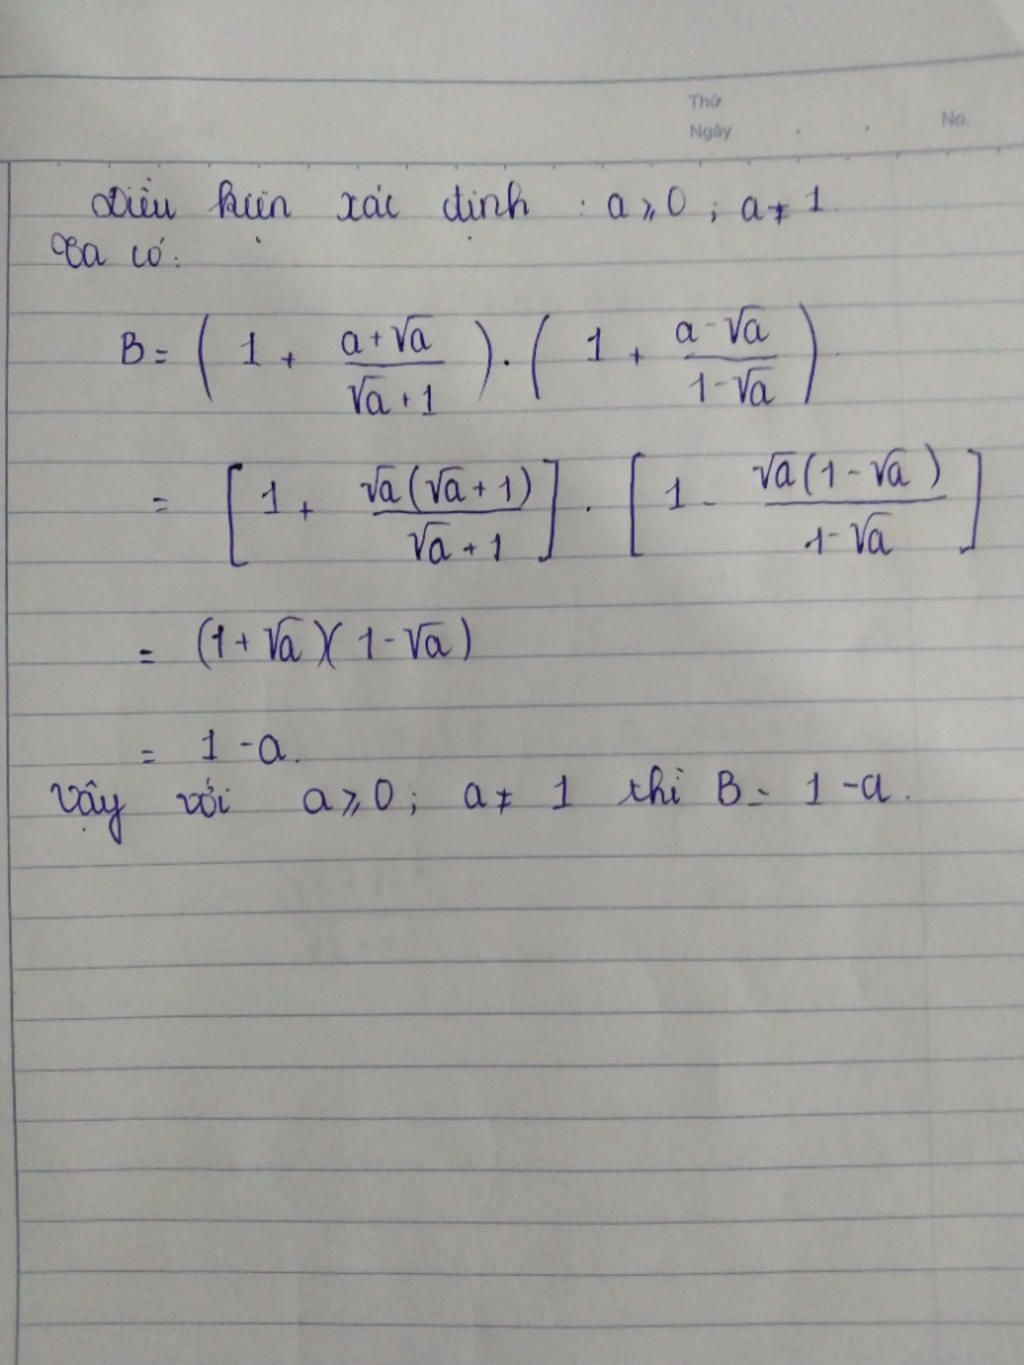 Thứ
Ngày . . No.
Điều kiện xác định : a ⩾ 0 ; a ≠ 1.
Ta có:
B = ( 1 + (a + √a)/(√a + 1) ) . ( 1 + (a - √a)/(1 - √a) ).
= [ 1 + √a(√a + 1)/(√a + 1) ] . [ 1 - √a(1 - √a)/(1 - √a) ]
= (1 + √a)(1 - √a)
= 1 - a.
Vậy với a ⩾ 0; a ≠ 1 thì B = 1 - a.